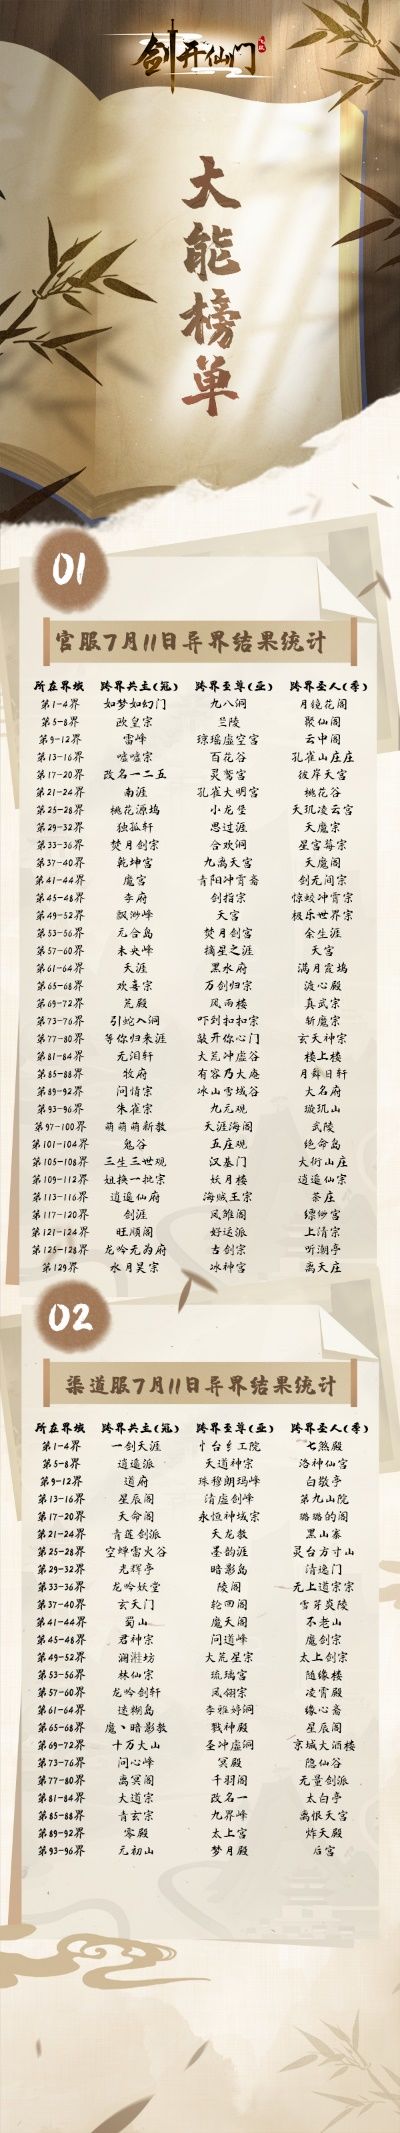 剑开仙门
大能榜单
01
官服7月11日异界结果统计
所在界域 跨界共主(冠) 跨界至尊(亚) 跨界圣人(季)
第1-4界 如梦如幻门 九八洞 月镜花阁
第5-8界 欧皇宗 兰陵 聚仙阁
第9-12界 雷峰 琼瑶虚空宫 云中阁
第13-16界 嘘嘘宗 百花谷 孔雀山庄庄
第17-20界 改名一二五 灵鹫宫 彼岸天宫
第21-24界 南涯 孔雀大明宫 桃花谷
第25-28界 桃花源坞 小龙堡 天玑凌云宫
第29-32界 独孤轩 思过涯 天魔宗
第33-36界 焚月剑宗 合欢洞 星宫莓宗
第37-40界 乾坤宫 九离天宫 天魔阁
第41-44界 魔宫 青阳冲霄斋 剑无间宗
第45-48界 李府 剑指宗 惊蛟冲霄宗
第49-52界 飘渺峰 天宫 极乐世界宗
第53-56界 元合岛 焚月剑宫 余生涯
第57-60界 未央峰 摘星之涯 天宫
第61-64界 天涯 黑水府 满月霞坞
第65-68界 欢喜宗 万剑归宗 渡心殿
第69-72界 荒殿 风雨楼 真武宗
第73-76界 引蛇入洞 吓到扣扣宗 斩魔宗
第77-80界 等你归来涯 敲开你心门 玄天神宗
第81-84界 无泪轩 大荒冲虚谷 楼上楼
第85-88界 牧府 有容乃大庵 月舜日轩
第89-92界 问情宗 冰山雪域谷 大名府
第93-96界 朱雀宗 九元观 璇玑山
第97-100界 萌萌萌新教 天涯海阁 武陵
第101-104界 鬼谷 五庄观 绝命岛
第105-108界 三生三世观 汉基门 大衍山庄
第109-112界 姐换一批宗 妖月楼 逍遥仙宗
第113-116界 逍遥仙府 海贼王宗 茶庄
第117-120界 剑涯 凤雏阁 缥缈宫
第121-124界 旺顺阁 好运派 上清宗
第125-128界 龙吟无为府 古剑宗 听潮亭
第129界 水月吴宗 冰神宫 离天庄
02
渠道服7月11日异界结果统计
所在界域 跨界共主(冠) 跨界至尊(亚) 跨界圣人(季)
第1-4界 一剑天涯 七煞殿
第5-8界 逍遥派 天道神宗 洛神仙宫
第9-12界 道府 珠穆朗玛峰 白散亭
第13-16界 星辰阁 清虚剑峰 第九山院
第17-20界 天命阁 永恒神域宗 璐璐的阁
第21-24界 青莲剑派 天龙教 黑山寨
第25-28界 空蝉雷火谷 墨韵涯 灵台方寸山
第29-32界 光辉亭 暗影岛 清逸门
第33-36界 龙吟妖堂 陵阁 无上道宗宗
第37-40界 玄天门 轮回阁 雪芽炎陵
第41-44界 蜀山 魔天阁 不老山
第45-48界 君神宗 问道峰 魔剑宗
第49-52界 大荒星宗 太上剑宗
第53-56界 林仙宗 琉璃宫 随缘楼
第57-60界 龙吟剑轩 凤翎宗 凌霄殿
第61-64界 迷糊岛 李雅婷洞 缘心斋
第65-68界 魔丶暗影教 戰神殿 星辰阁
第69-72界 十万大山 圣冲虚洞 京城大酒楼
第73-76界 问心峰 冥殿 隐仙谷
第77-80界 离冥阁 千羽阁 无量剑派
第81-84界 大道宗 改名一 太白亭
第85-88界 青玄宗 九界峰 离恨天宫
第89-92界 零殿 太上宫 炸天殿
第93-96界 元初山 梦月殿 后宫